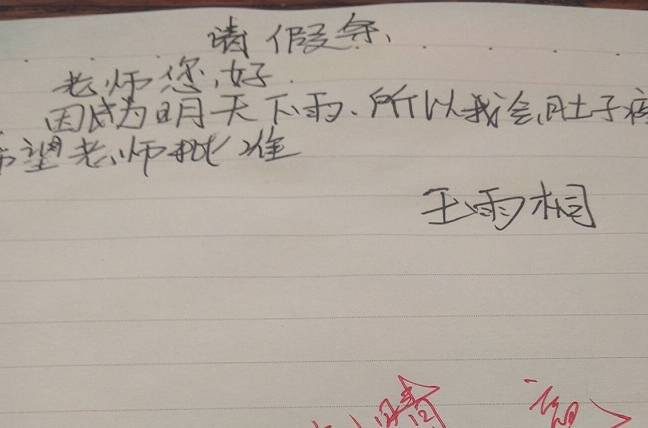 请假条
老师您好
因为明天下雨、所以我会肚子疼
希望老师批准
王雨相
晴